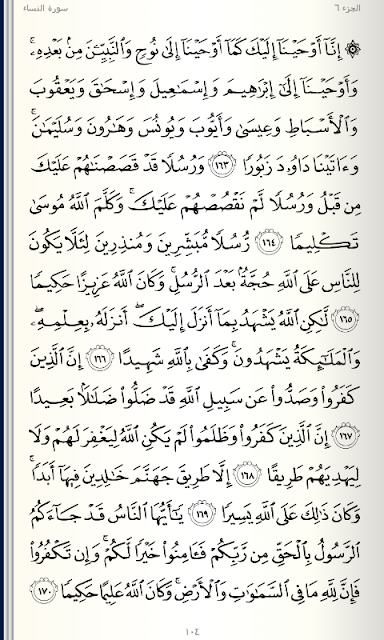 سورة النساء الجزء ٦
۞ إِنَّآ أَوْحَيْنَآ إِلَيْكَ كَمَآ أَوْحَيْنَآ إِلَىٰ نُوحٍ وَٱلنَّبِيِّـۧنَ مِنۢ بَعْدِهِۦۚ
وَأَوْحَيْنَآ إِلَىٰٓ إِبْرَٰهِيمَ وَإِسْمَـٰعِيلَ وَإِسْحَـٰقَ وَيَعْقُوبَ
وَٱلْأَسْبَاطِ وَعِيسَىٰ وَأَيُّوبَ وَيُونُسَ وَهَـٰرُونَ وَسُلَيْمَـٰنَۚ
وَءَاتَيْنَا دَاوُۥدَ زَبُورًا ١٦٣ وَرُسُلًا قَدْ قَصَصْنَـٰهُمْ عَلَيْكَ
مِن قَبْلُ وَرُسُلًا لَّمْ نَقْصُصْهُمْ عَلَيْكَۚ وَكَلَّمَ ٱللَّهُ مُوسَىٰ
تَكْلِيمًا ١٦٤ رُّسُلًا مُّبَشِّرِينَ وَمُنذِرِينَ لِئَلَّا يَكُونَ
لِلنَّاسِ عَلَى ٱللَّهِ حُجَّةٌۢ بَعْدَ ٱلرُّسُلِۚ وَكَانَ ٱللَّهُ عَزِيزًا حَكِيمًا
١٦٥ لَّـٰكِنِ ٱللَّهُ يَشْهَدُ بِمَآ أَنزَلَ إِلَيْكَۖ أَنزَلَهُۥ بِعِلْمِهِۦۖ
وَٱلْمَلَـٰٓئِكَةُ يَشْهَدُونَۚ وَكَفَىٰ بِٱللَّهِ شَهِيدًا ١٦٦ إِنَّ ٱلَّذِينَ
كَفَرُوا۟ وَصَدُّوا۟ عَن سَبِيلِ ٱللَّهِ قَدْ ضَلُّوا۟ ضَلَـٰلًۢا بَعِيدًا
١٦٧ إِنَّ ٱلَّذِينَ كَفَرُوا۟ وَظَلَمُوا۟ لَمْ يَكُنِ ٱللَّهُ لِيَغْفِرَ لَهُمْ وَلَا
لِيَهْدِيَهُمْ طَرِيقًا ١٦٨ إِلَّا طَرِيقَ جَهَنَّمَ خَـٰلِدِينَ فِيهَآ أَبَدًاۚ
وَكَانَ ذَٰلِكَ عَلَى ٱللَّهِ يَسِيرًا ١٦٩ يَـٰٓأَيُّهَا ٱلنَّاسُ قَدْ جَآءَكُمُ
ٱلرَّسُولُ بِٱلْحَقِّ مِن رَّبِّكُمْ فَـَٔامِنُوا۟ خَيْرًا لَّكُمْۚ وَإِن تَكْفُرُوا۟
فَإِنَّ لِلَّهِ مَا فِى ٱلسَّمَـٰوَٰتِ وَٱلْأَرْضِۚ وَكَانَ ٱللَّهُ عَلِيمًا حَكِيمًا ١٧٠
١٠٤